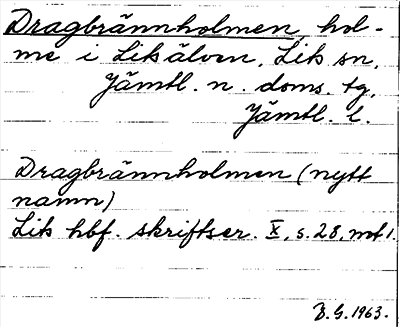 Dragbrännholmen, hol-
me i Likälven, Lik sn,
Jämtl. n. doms. tg,
Jämtl. l.
Dragbrännholmen (nytt
namn)
Lik hbf. skriftser. X, s. 28, mf 1.
B.G. 1963.